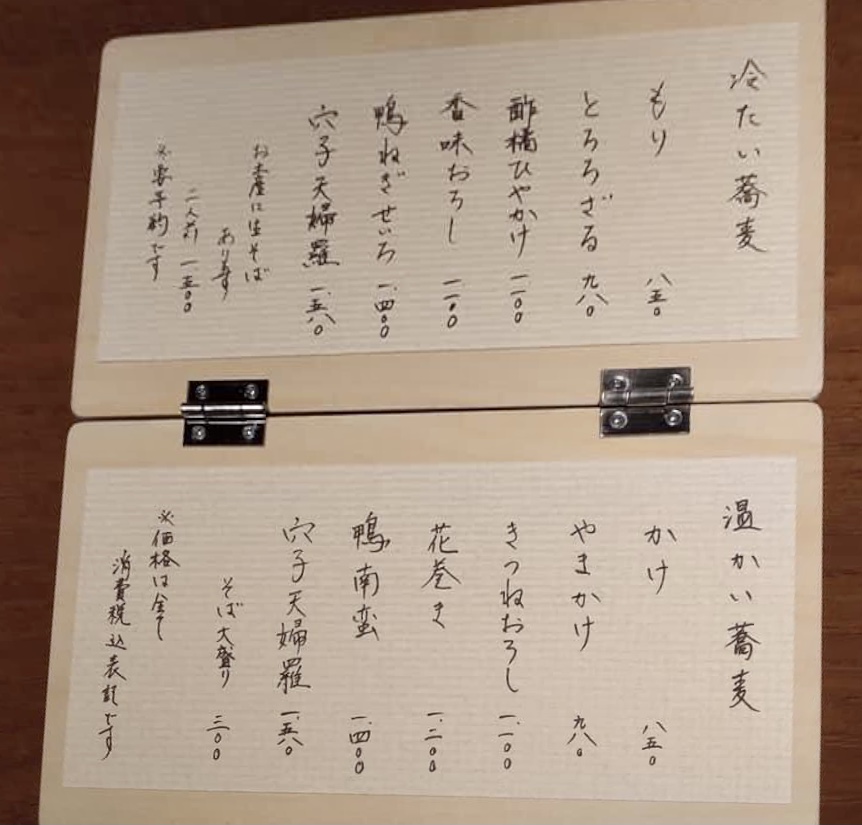 冷たい蕎麦
もり 八五〇
とろろざる 九八〇
酢橘ひやかけ 一.一〇〇
香味おろし 一.一〇〇
鴨ねぎせいろ 一.四〇〇
穴子天婦羅 一.五八〇
お土産に生そば
あります
二人前 一.五〇〇
※要予約です
温かい蕎麦
かけ 八五〇
やまかけ 九八〇
きつねおろし 一.一〇〇
花巻き 一.二〇〇
鴨南蛮 一.四〇〇
穴子天婦羅 一.五八〇
そば大盛り 三〇〇
※価格は全て
消費税込表記です